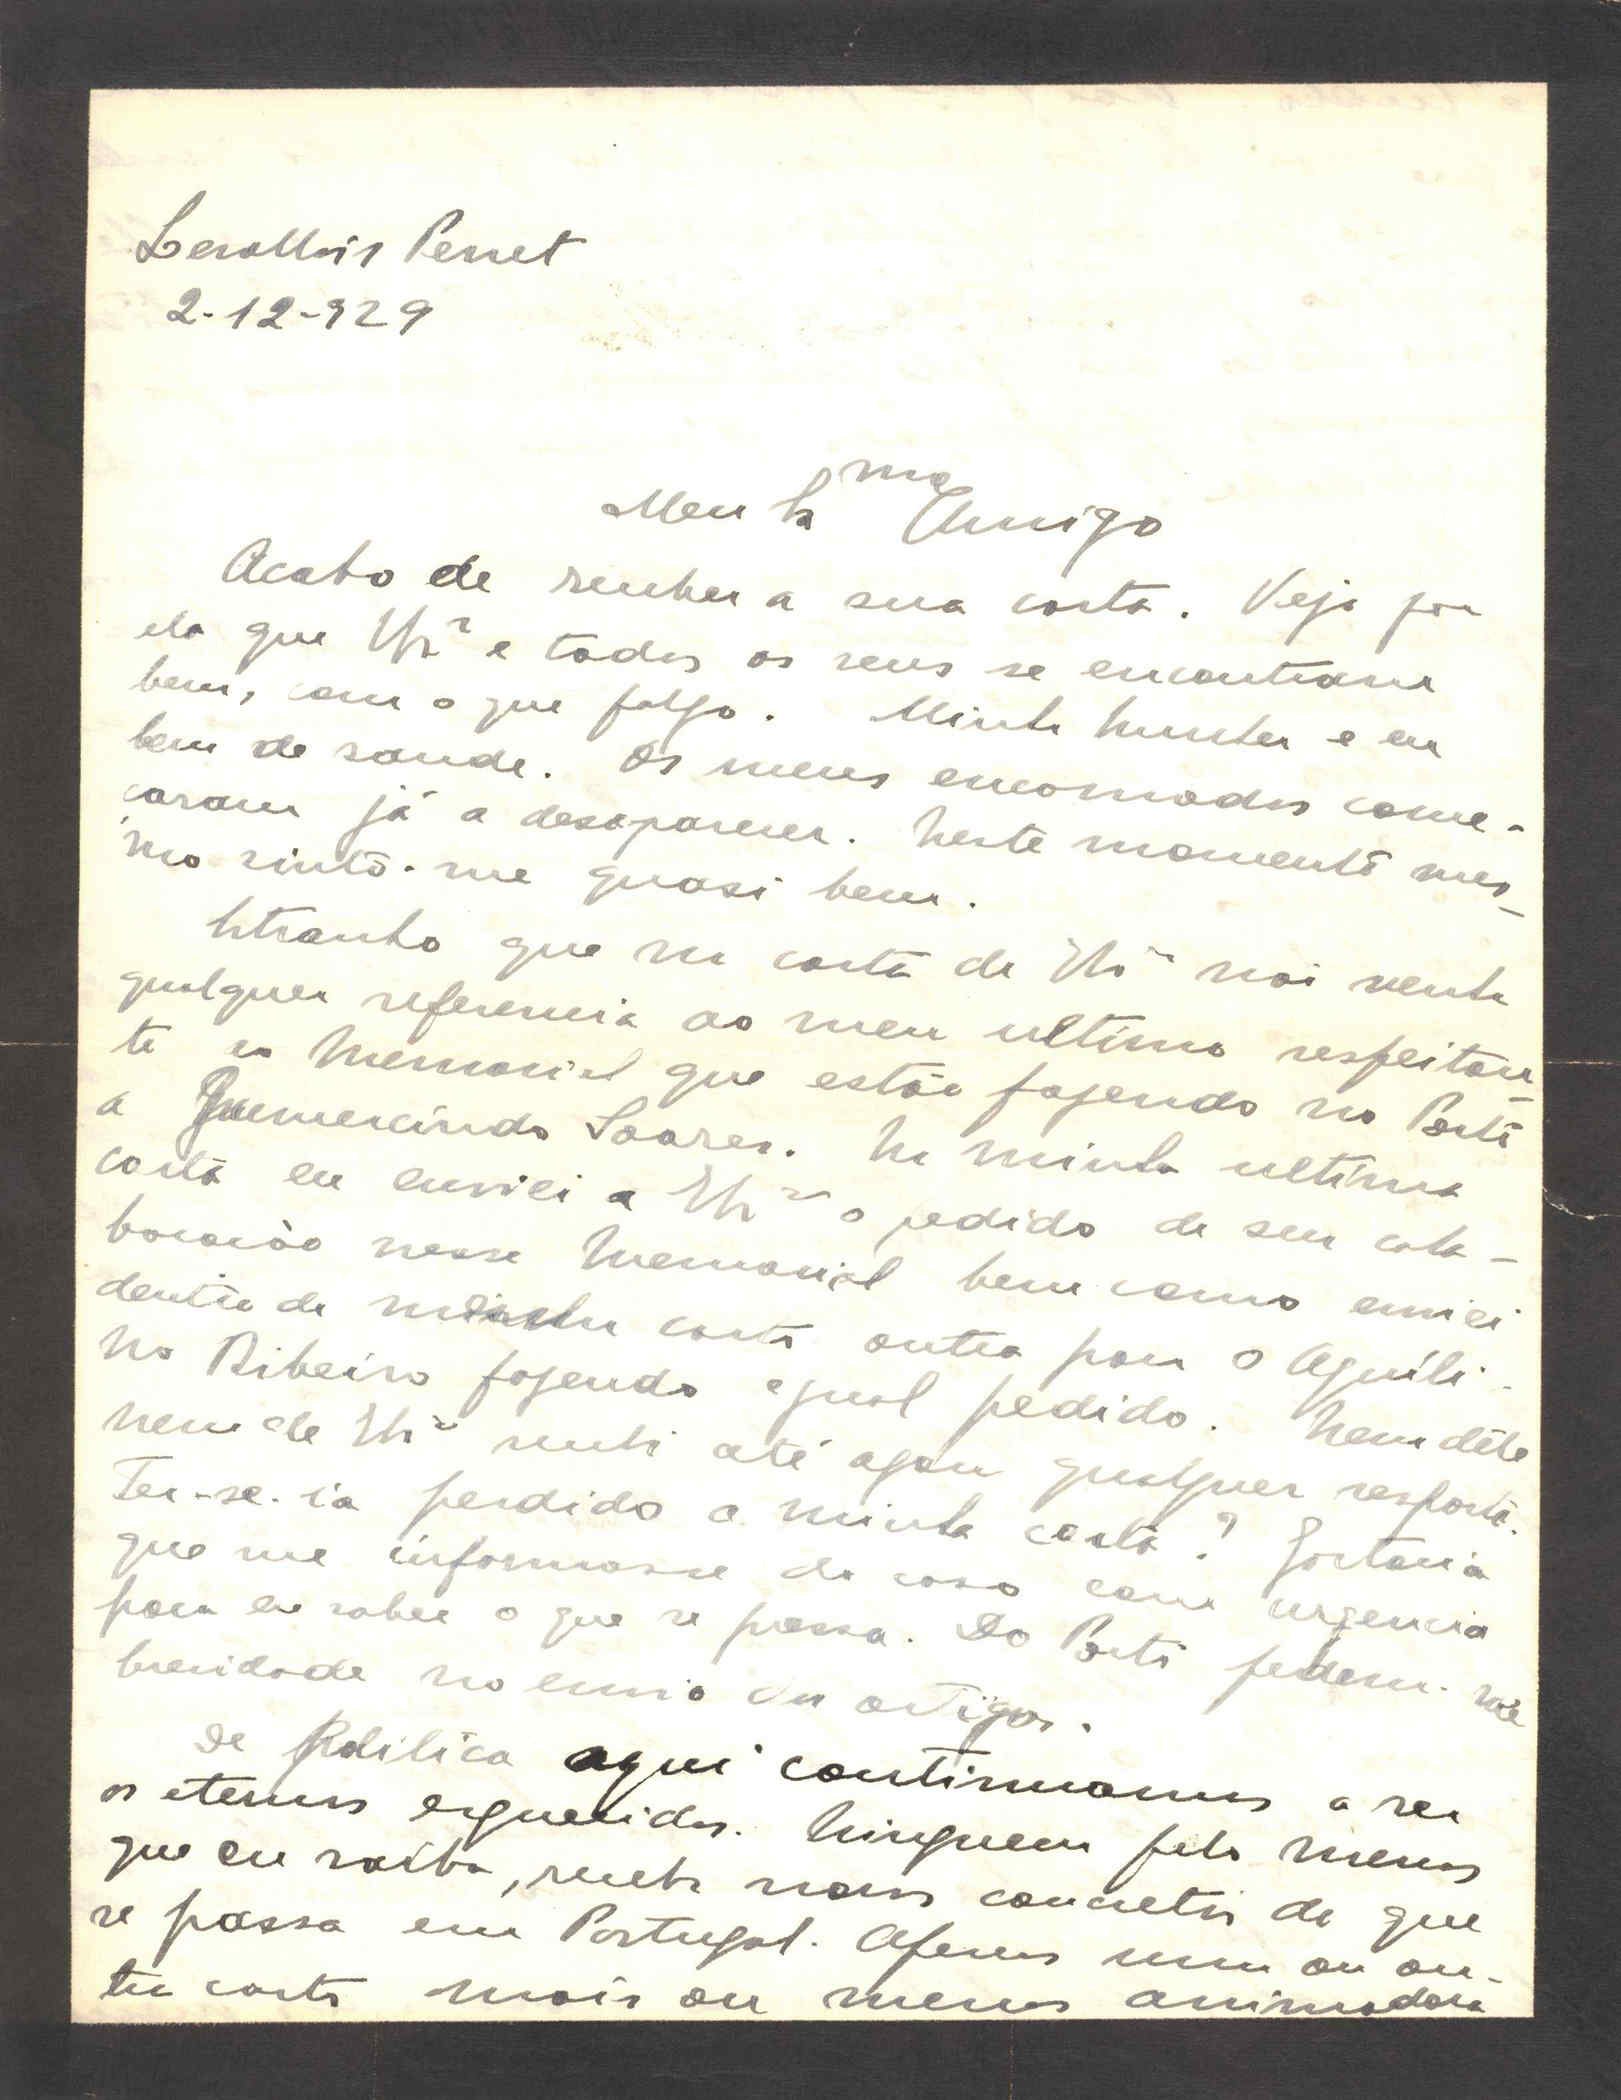 Levallois Perret
2-12-929
Meu Ex mo Amigo
Acabo de receber a sua carta. Vejo por
ela que V Ex ª e todos os seus se encontram
bem, com o que folgo. Minha mulher e eu
bem de saude. Os meus encomodos come-
çaram já a desaparecer. Neste momento mes-
mo sinto-me quasi bem.
Estranho que na carta de V Ex ª não venha
qualquer referencia ao meu ultimo respeitan-
te ao Memorial que estão fazendo no Porto
a Gumercindo Soares. Na minha ultima
carta eu enviei a V Ex ª o pedido de seu cola-
boração nesse Memorial bem como enviei
dentro da minha carta outra para o Aquili-
no Ribeiro fazendo egual pedido. Nem dêle
nem de V Ex ª recebi até agora qualquer resposta.
Ter-se-ia perdido a minha carta? Gostaria
que me informasse do caso com urgencia
para eu saber o que se passa. Do Porto pedem-me
brevidade no envio dos artigos.
De Politica aqui continuamos a ser
os eternos esquecidos. Ninguem pelo menos
que eu saiba, recebe novas concretas do que
se passa em Portugal. Apenas uma ou ou-
tra carta mais ou menos animadora